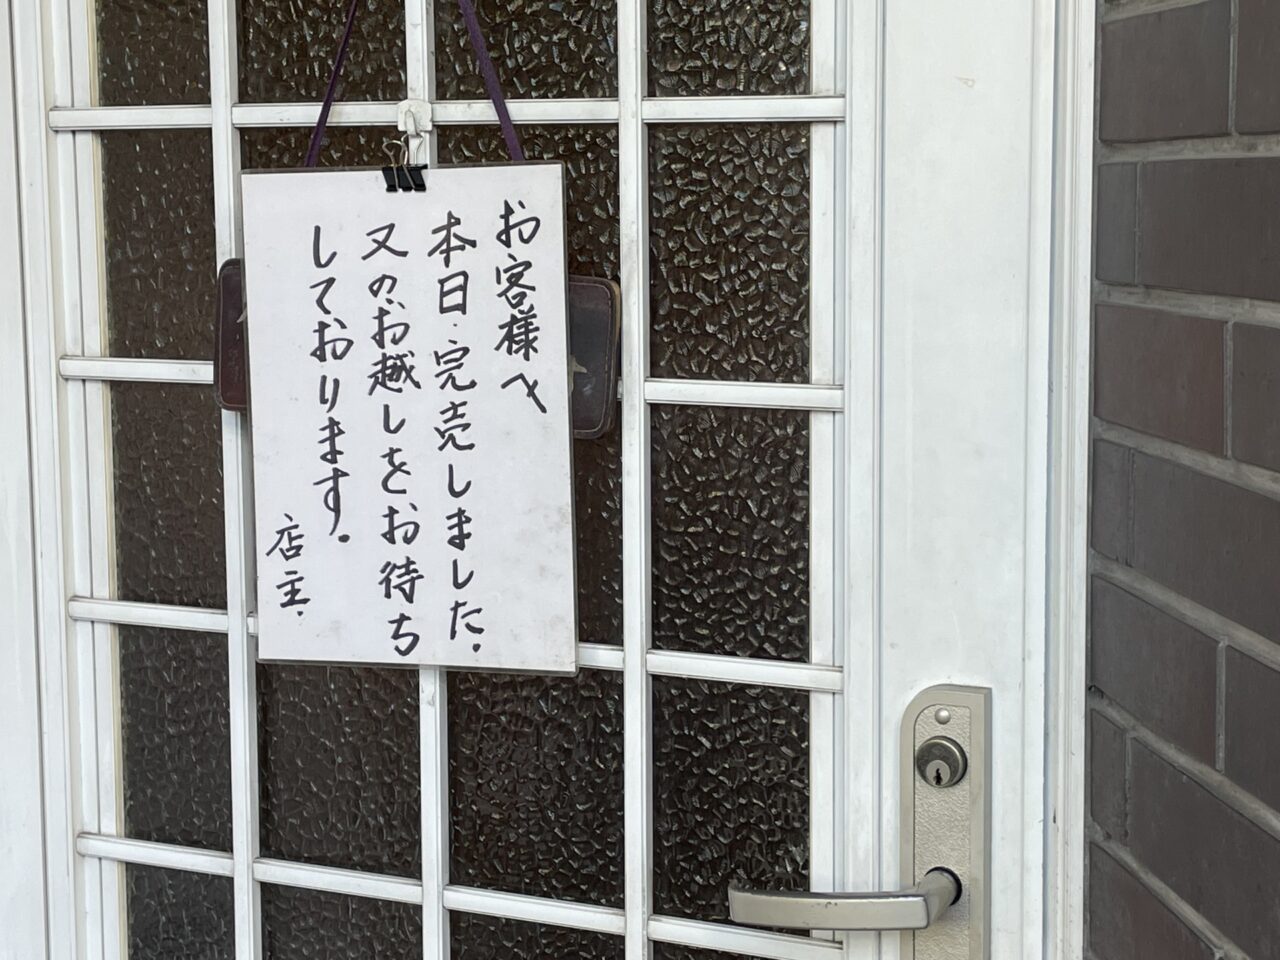 お客様へ
本日完売しました.
又のお越しをお待ち
しております.
店主.